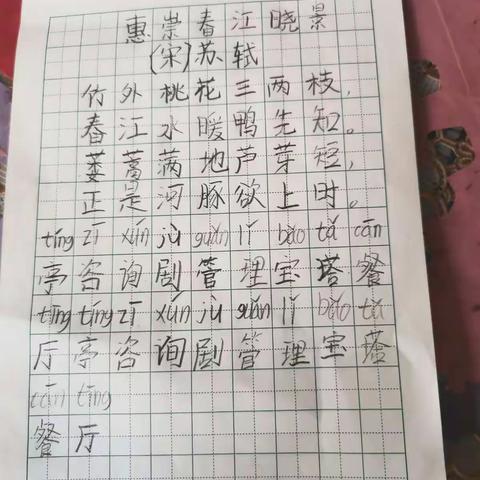 惠崇春江晓景
(宋)苏轼
竹外桃花三两枝,
春江水暖鸭先知。
蒌蒿满地芦芽短,
正是河豚欲上时。
tíng zī xún jù guǎn lǐ bǎo tǎ cān
亭咨询剧管理宝塔餐
tīng tíng zī xún jù guǎn lǐ bǎo tǎ
厅亭咨询剧管理宝塔
cān tīng
餐厅